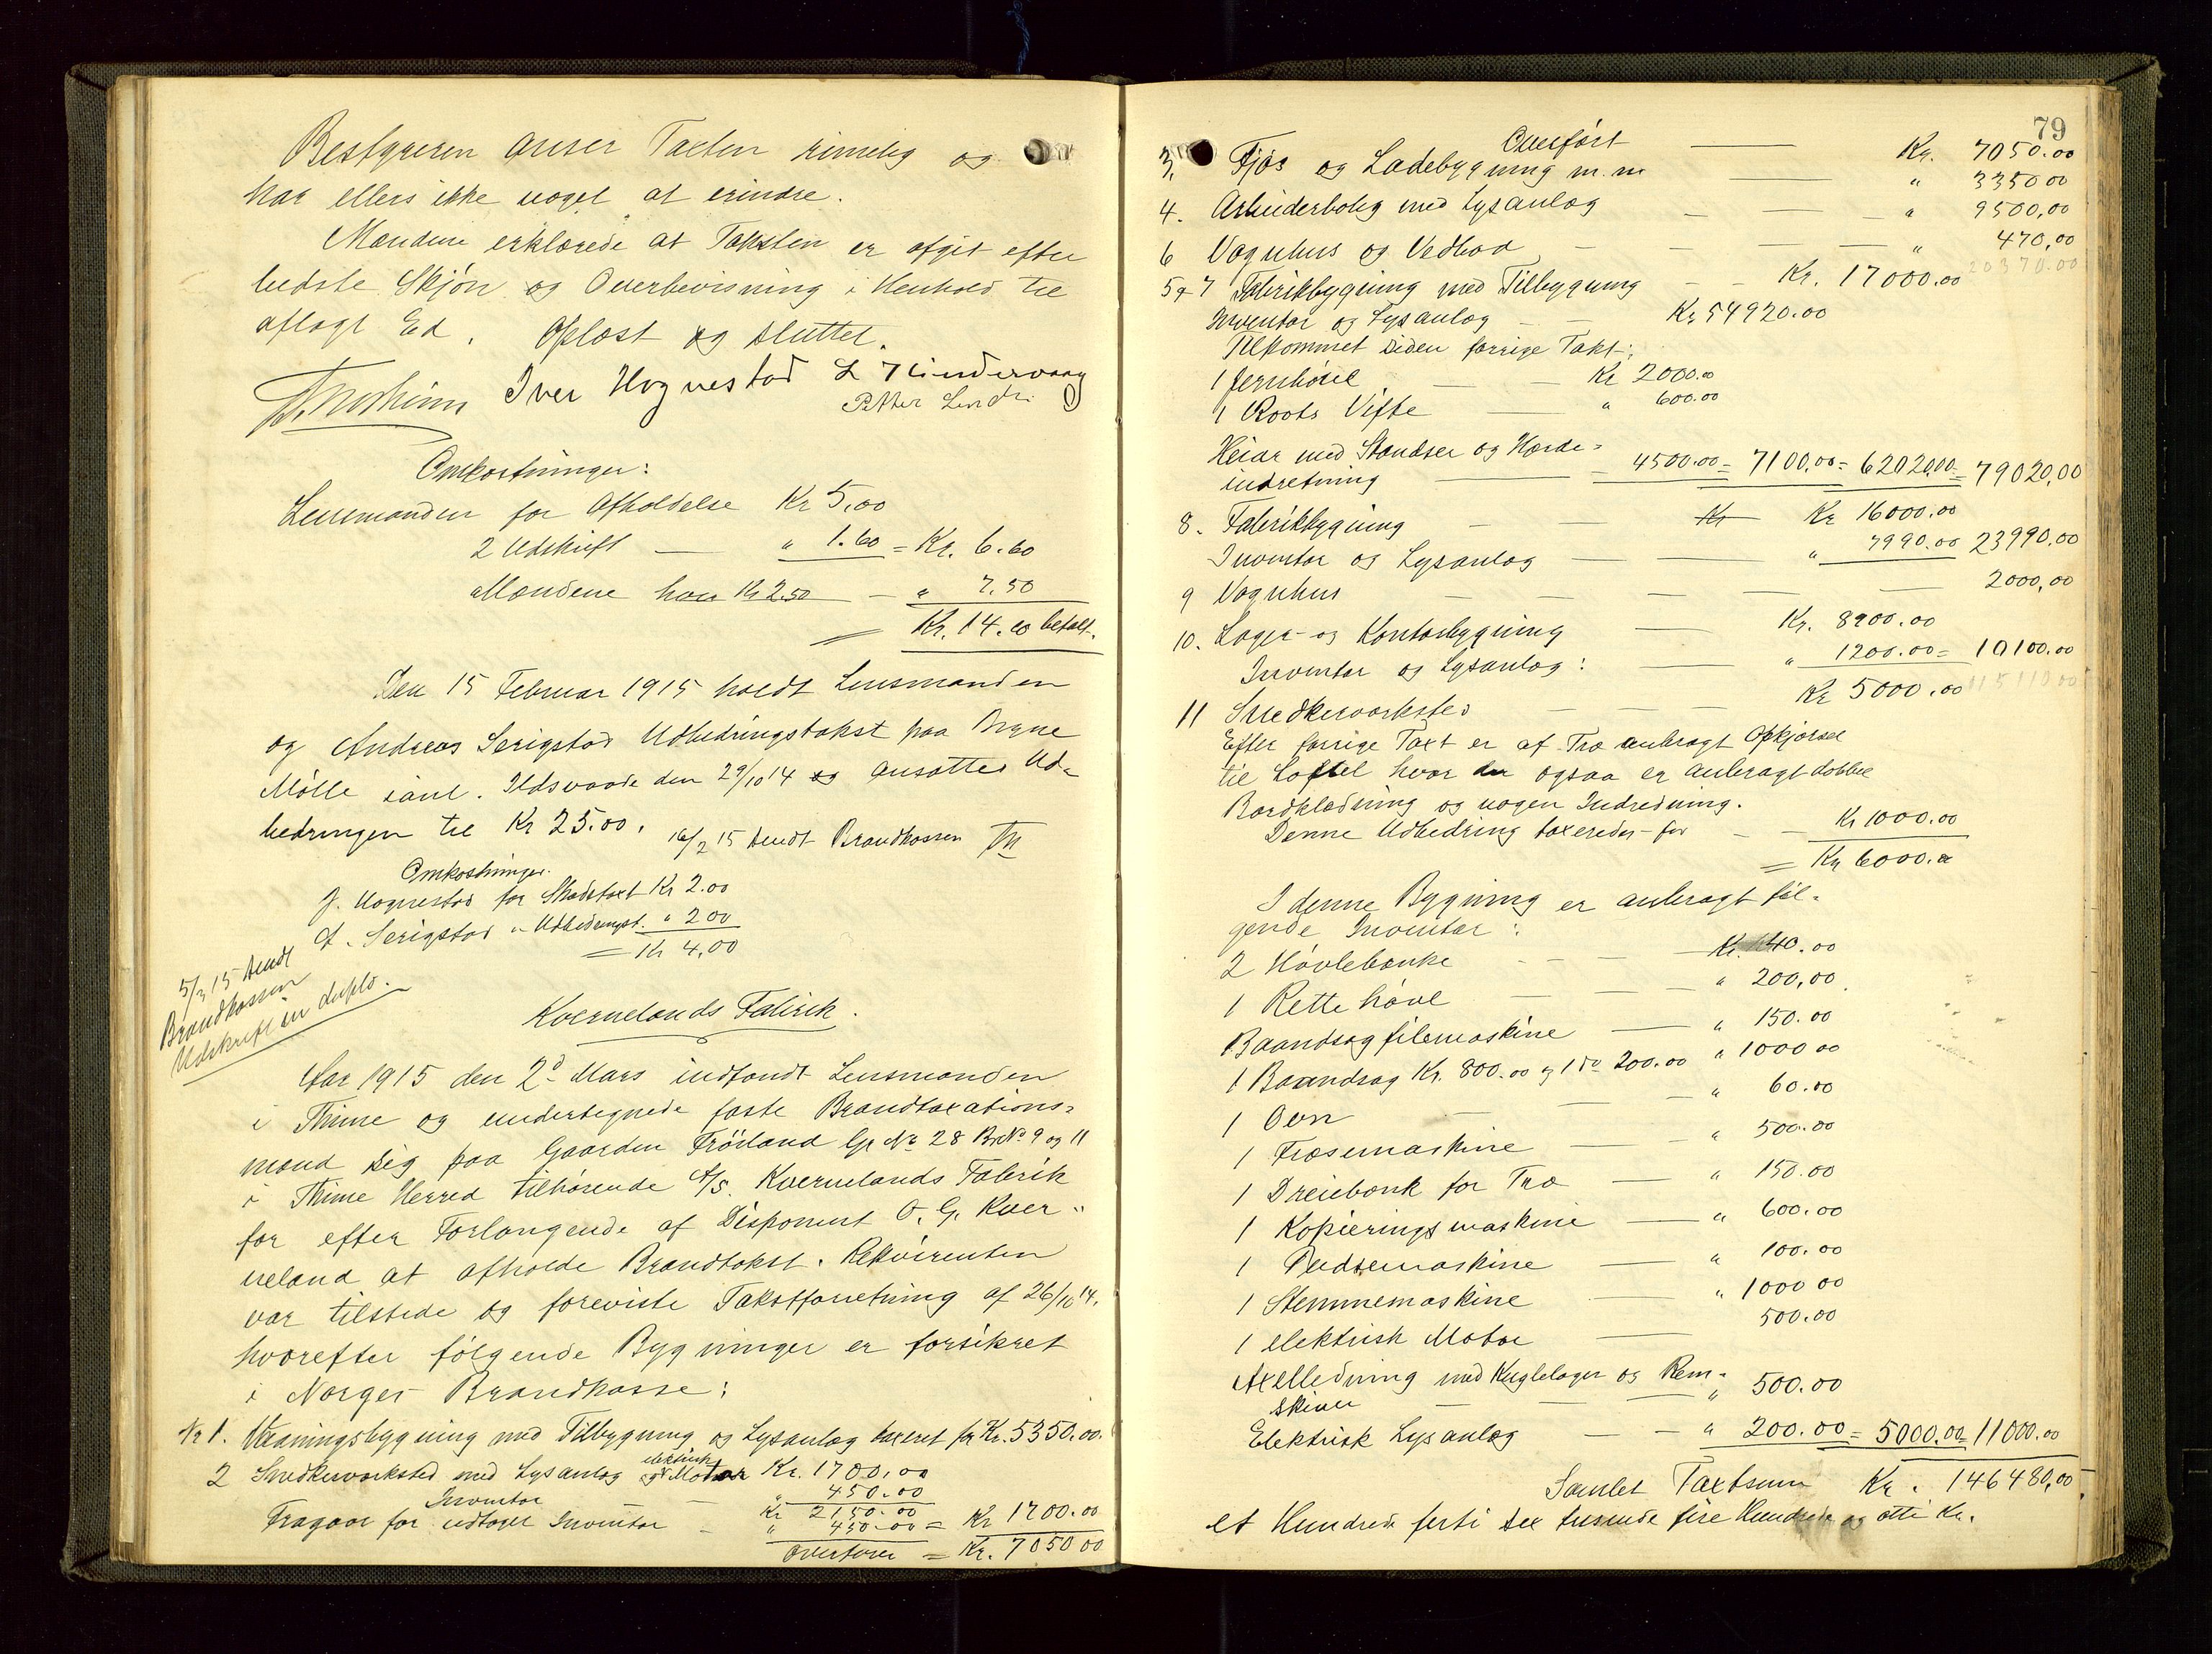 Bestyreren anser Taxten rimelig og
har ellers ikke noget at erindre.
Mændene erklærede at Taksten er afgit efter
bedste Skjön og Overbevisning i Henhold til
aflagt Ed. Oplæst og sluttet.
Iver Hognestad
Petter
Omkostninger:
Lensmanden for Afholdelse Kr 5,00
2 Udskrift — " 1.60 = Kr. 6.60
Mændene hver Kr 2.50 — " 7.50
= Kr. 14.10 betalt.
Den 15 Februar 1915 holdt Lensmanden
og Andreas Serigstad Udbedringstakst paa Bryne
Mölle ianl. Ildsvaade den 29/10 14 og ansattes Ud-
bedringen til Kr 25.00. 16/2 15 sendt Brandkassen
Omkostninger.
J. Hognestad for Skadetaxt Kr 2.00
A. Serigstad " Udbedringst. " 2 00
= Kr 4,00
5/3 15 sendt
Brandkassen
Udskrift in duplo.
Kvernelands Fabrik.
Aar 1915 den 2d Mars indfandt Lensmanden
i Thime og undertegnede faste Brandtaxations-
mænd sig paa Gaarden Fröiland Gr No 28 Br No 9 og 11
i Thime Herred tilhörende A/S. Kvernelands Fabrik
for efter Forlangende af Disponent O. G. Kver-
neland at afholde Brandtakst. Rekvirenten
var tilstede og foreviste Takstforretning af 26/10 14.
hvorefter fölgende Bygninger er forsikret
i Norges Brandkasse:
Nr 1. Vaaningsbygning med Tilbygning og Lysanlæg taxeret for Kr. 5350.00.
2 Snedkerværksted med Lysanlæg og elektrisk Motor Kr. 1700,00
Inventar " 450.00
Kr 2150.00
Fragaar for udtaget Inventar " 450.00 = Kr 1700.00
Overföres = Kr. 7050 00
79
Overfört — Kr. 7050.00
3, Fjös og Ladebygning m.m — " 3350 00
4. Arbeiderbolig med Lysanlæg — " 9500,00
6 Vognhus og Vedbod — " 470,00
20370.00
5 & 7 Fabrikbygning med Tilbygning — Kr. 17000.00
Inventar og Lysanlæg — Kr 54920.00
Tilkommet siden forrige Takt:
1 Jernhövel — Kr 2000.00
1 Roots Vifte — " 600.00
Heiar med Standser og Hærde-
indretning — 4500.00 = 7100,00 = 62020,00 = 79020,00
8. Fabrikbygning — Kr Kr 16000.00
Inventar og Lysanlæg — " 7990.00 23990.00
9 Vognhus — 2000,00
10. Lager- og Kontorbygning — Kr. 8900.00
Inventar og Lysanlæg: — " 1200.00 = 10100.00
115110 00
11 Snedkerværksted — Kr 5000.00
Efter forrige Taxt er af Træ anbragt Opkjørsel
til Loftet hvor der ogsaa er anbragt dobbel
Bordklædning og nogen Indredning.
Denne Udbedring taxeredes for — Kr 1000.00
= Kr 6000.00
I denne Bygning er anbragt föl-
gende Inventar:
2 Hövlebænke — Kr. 40.00
1 Rettehövl — " 200,00
Baandsagfilemaskine — " 150.00
1 Baandsag Kr. 800.00 og 1 do 200.00 " 1000 00
1 Ovn — " 60.00
1 Fræsemaskine — " 500.00
1 Dreiebænk for Træ — " 150.00
1 Kopieringsmaskine — " 600.00
1 Pudsemaskine — " 100.00
1 Stemmemaskine — " 1000 00
1 elektrisk Motor — 500.00
Axelledning med Kuglelager og Rem-
skiver — " 500.00
Elektrisk Lysanlæg — " 200.00 = 5000.00 = 11000.00
Samlet Taxtsum Kr. 146480,00.
et Hundrede forti sex tusende fire Hundrede og otti Kr.